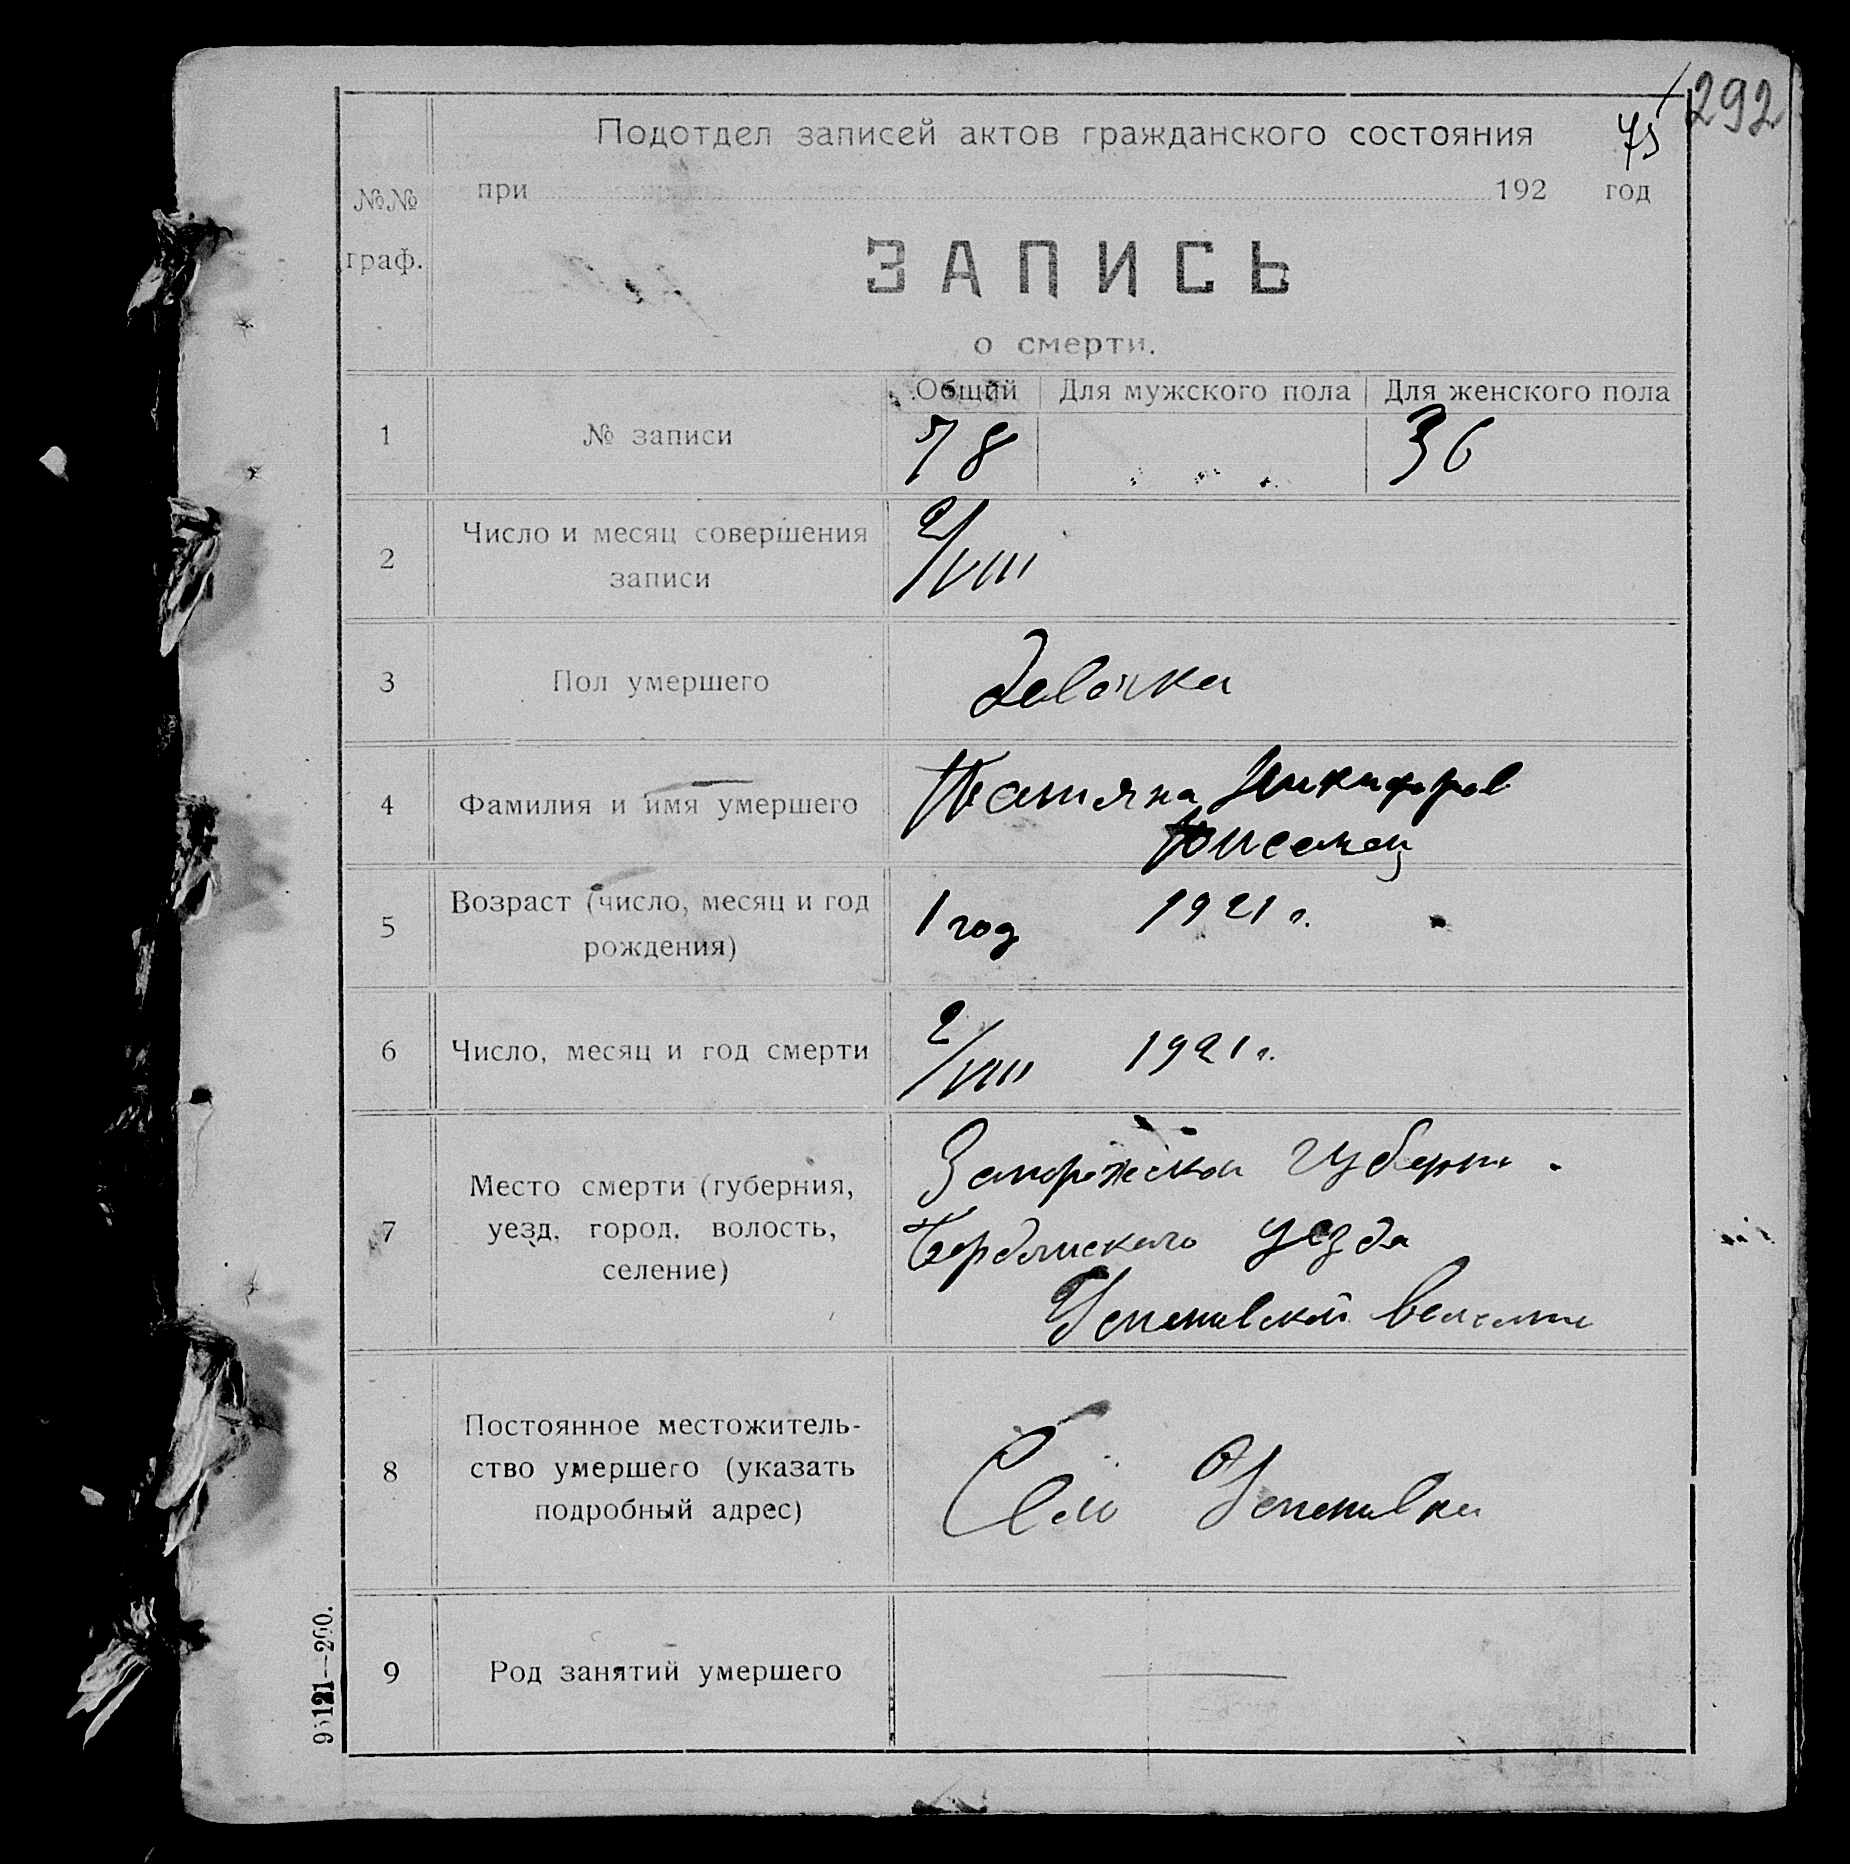 292
75
Подотдел записей актов гражданского состояния
при 192 год
№№ граф.
ЗАПИСЬ
о смерти.
Общий Для мужского пола Для женского пола
1 № записи 78 36
2 Число и месяц совершения записи 2/VIII
3 Пол умершего Девочка
4 Фамилия и имя умершего Татияна Никифоров
5 Возраст (число, месяц и год рождения) 1 год 1921 г.
6 Число, месяц и год смерти 2/VIII 1921 г.
7 Место смерти (губерния, уезд, город, волость, селение) Запорожской губерни.
Бердянского уезда
Успеновской волости
8 Постоянное местожитель-
ство умершего (указать
подробный адрес)
Село Успеновка
9 Род занятий умершего —